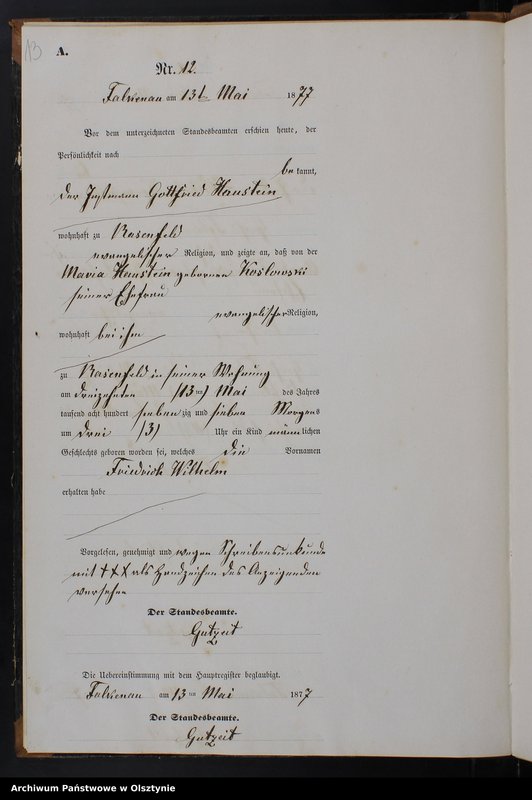 13
A.
Nr. 12.
Falkenau am 13t Mai 1877
Vor dem unterzeichneten Standesbeamten erschien heute, der
Persönlichkeit nach
be kannt,
der Instmann Gottfried Haustein
wohnhaft zu Rosenfeld
evangelischer Religion, und zeigte an, daß von der
Maria Haustein geborenen Koslowski
seiner Ehefrau
evangelischer Religion,
wohnhaft bei ihm
zu Rosenfeld in seiner Wohnung
am dreizehnten (13ten) Mai des Jahres
tausend acht hundert sieben zig und sieben Morgens
um drei (3) Uhr ein Kind männlichen
Geschlechts geboren worden sei, welches die Vornamen
Friedrich Wilhelm
erhalten habe
Vorgelesen, genehmigt und wegen Schreibensunkunde
mit +++ als Handzeichen des Anzeigenden
versehen
Der Standesbeamte.
Gutzeit
Die Uebereinstimmung mit dem Hauptregister beglaubigt.
Falkenau am 13ten Mai 1877
Der Standesbeamte.
Gutzeit
Archiwum Państwowe w Olsztynie